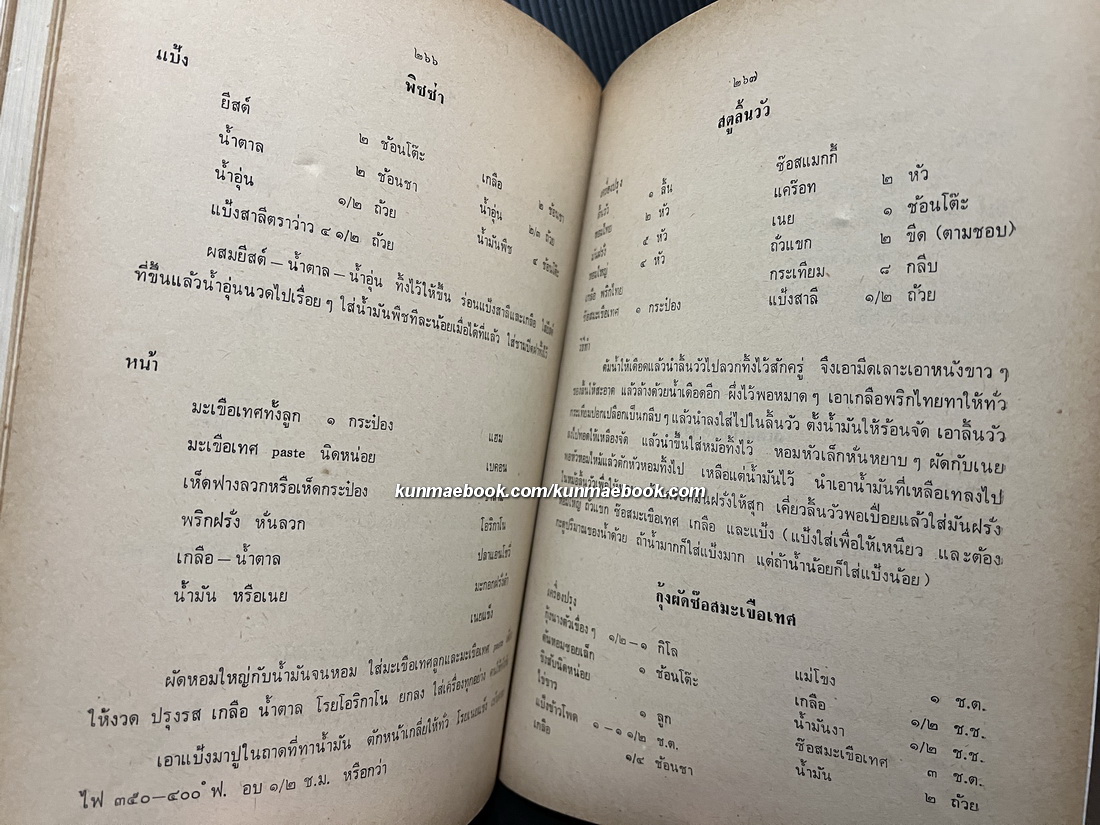 ๒๖๖
แป้ง
พิซซ่า
ยีสต์ ๒ ช้อนโต๊ะ เกลือ ๒ ช้อนชา
น้ำตาล ๒ ช้อนชา น้ำอุ่น ๒/๓ ถ้วย
น้ำอุ่น ๑/๒ ถ้วย น้ำมันพืช ๔ ช้อนโต๊ะ
แป้งสาลีตราว่าว ๔ ๑/๒ ถ้วย
ผสมยีสต์ – น้ำตาล – น้ำอุ่น ทิ้งไว้ให้ขึ้น ร่อนแป้งสาลีและเกลือ ใส่ยีสต์
ที่ขึ้นแล้วน้ำอุ่นนวดไปเรื่อยๆ ใส่น้ำมันพืชทีละน้อยเมื่อได้ที่แล้ว ใส่ชามปิดฝาทิ้งไว้
หน้า
มะเขือเทศทั้งลูก ๑ กระป๋อง แฮม
มะเขือเทศ paste นิดหน่อย เบคอน
เห็ดฟางลวกหรือเห็ดกระป๋อง
พริกฝรั่ง หั่นลวก โอริกาโน
เกลือ – น้ำตาล ปลาแอนโชวี่
น้ำมัน หรือเนย มะกอกฝรั่งดำ
เนยแข็ง
ผัดหอมใหญ่กับน้ำมันจนหอม ใส่มะเขือเทศลูกและมะเขือเทศ paste
ให้งวด ปรุงรส เกลือ น้ำตาล โรยโอริกาโน ยกลง ใส่เครื่องทุกอย่าง
เอาแป้งมาปูในถาดที่ทาน้ำมัน ตักหน้าเกลี่ยให้ทั่ว โรยเนยแข็ง
ไฟ ๓๕๐–๔๐๐° ฟ. อบ ๑/๒ ช.ม. หรือกว่า
๒๖๗
สตูลิ้นวัว
เครื่องปรุง ซ๊อสแมกกี้
ลิ้นวัว ๑ ลิ้น แคร๊อท ๒ หัว
หอมใหญ่ ๒ หัว เนย ๑ ช้อนโต๊ะ
มันฝรั่ง ๕ หัว ถั่วแขก ๒ ขีด (ตามชอบ)
๔ หัว กระเทียม ๘ กลีบ
เกลือ พริกไทย แป้งสาลี ๑/๒ ถ้วย
ซ๊อสมะเขือเทศ ๑ กระป๋อง
วิธีทำ
ต้มน้ำให้เดือดแล้วนำลิ้นวัวไปลวกทิ้งไว้สักครู่ จึงเอามีดเลาะเอาหนังขาว ๆ
ของลิ้นให้สะอาด แล้วล้างด้วยน้ำเดือดอีก ผึ่งไว้พอหมาด ๆ เอาเกลือพริกไทยทาให้ทั่ว
กระเทียมปอกเปลือกเป็นกลีบๆ แล้วนำลงใส่ไปในลิ้นวัว ตั้งน้ำมันให้ร้อนจัด เอาลิ้นวัว
ลงไปทอดให้เหลืองจัด แล้วนำขึ้นใส่หม้อทิ้งไว้ หอมหัวเล็กหั่นหยาบๆ ผัดกับเนย
พอหัวหอมไหม้แล้วตักหัวหอมทิ้งไป เหลือแต่น้ำมันไว้ นำเอาน้ำมันที่เหลือเทลงไป
ในหม้อลิ้นวัวเพื่อให้ มันฝรั่งให้สุก เคี่ยวลิ้นวัวพอเปื่อยแล้วใส่มันฝรั่ง
หอมใหญ่ ถั่วแขก ซ๊อสมะเขือเทศ เกลือ และแป้ง (แป้งใส่เพื่อให้เหนียว และต้อง
กะดูปริมาณของน้ำด้วย ถ้าน้ำมากก็ใส่แป้งมาก แต่ถ้าน้ำน้อยก็ใส่แป้งน้อย)
กุ้งผัดซ๊อสมะเขือเทศ
เครื่องปรุง
กุ้งนางตัวเขื่อง ๆ ๑/๒ – ๑ กิโล แม่โขง ๑ ช.ต.
ต้นหอมซอยเล็ก ๑ ช้อนโต๊ะ เกลือ ๑/๒ ช.ช.
ขิงสับนิดหน่อย น้ำมันงา ๑/๒ ช.ช.
ไข่ขาว ๑ ลูก ซ๊อสมะเขือเทศ ๓ ช.ต.
แป้งข้าวโพด ๑ – ๑ ๑/๒ ช.ต. น้ำมัน ๒ ถ้วย
เกลือ ๑/๔ ช้อนชา
kunmaebook.com/kunmaebook.com